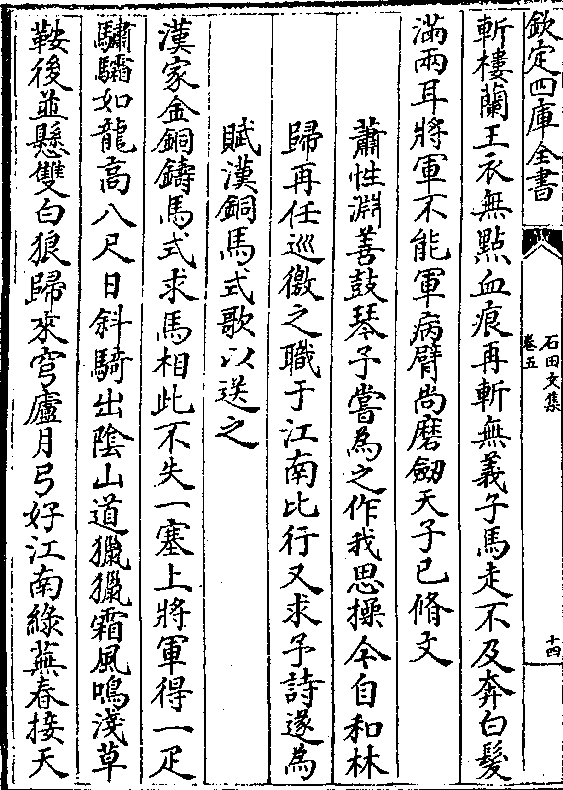 欽定四庫全書
石田文集
卷五
十四
斬樓蘭王衣無㸃血痕再斬無義子馬走不及奔白髮
滿兩耳將軍不能軍病臂尚磨劒天子已脩文
蕭性淵善鼓琴予嘗為之作我思操今自和林
歸再任巡徼之職于江南比行又求予詩遂為
賦漢銅馬式歌以送之
漢家金銅鑄馬式求馬相此不失一塞上將軍得一疋
驌驦如龍高八尺日斜騎出陰山道獵獵霜風鳴淺草
鞍後並懸雙白狼歸來穹廬月弓好江南綠蕪春接天